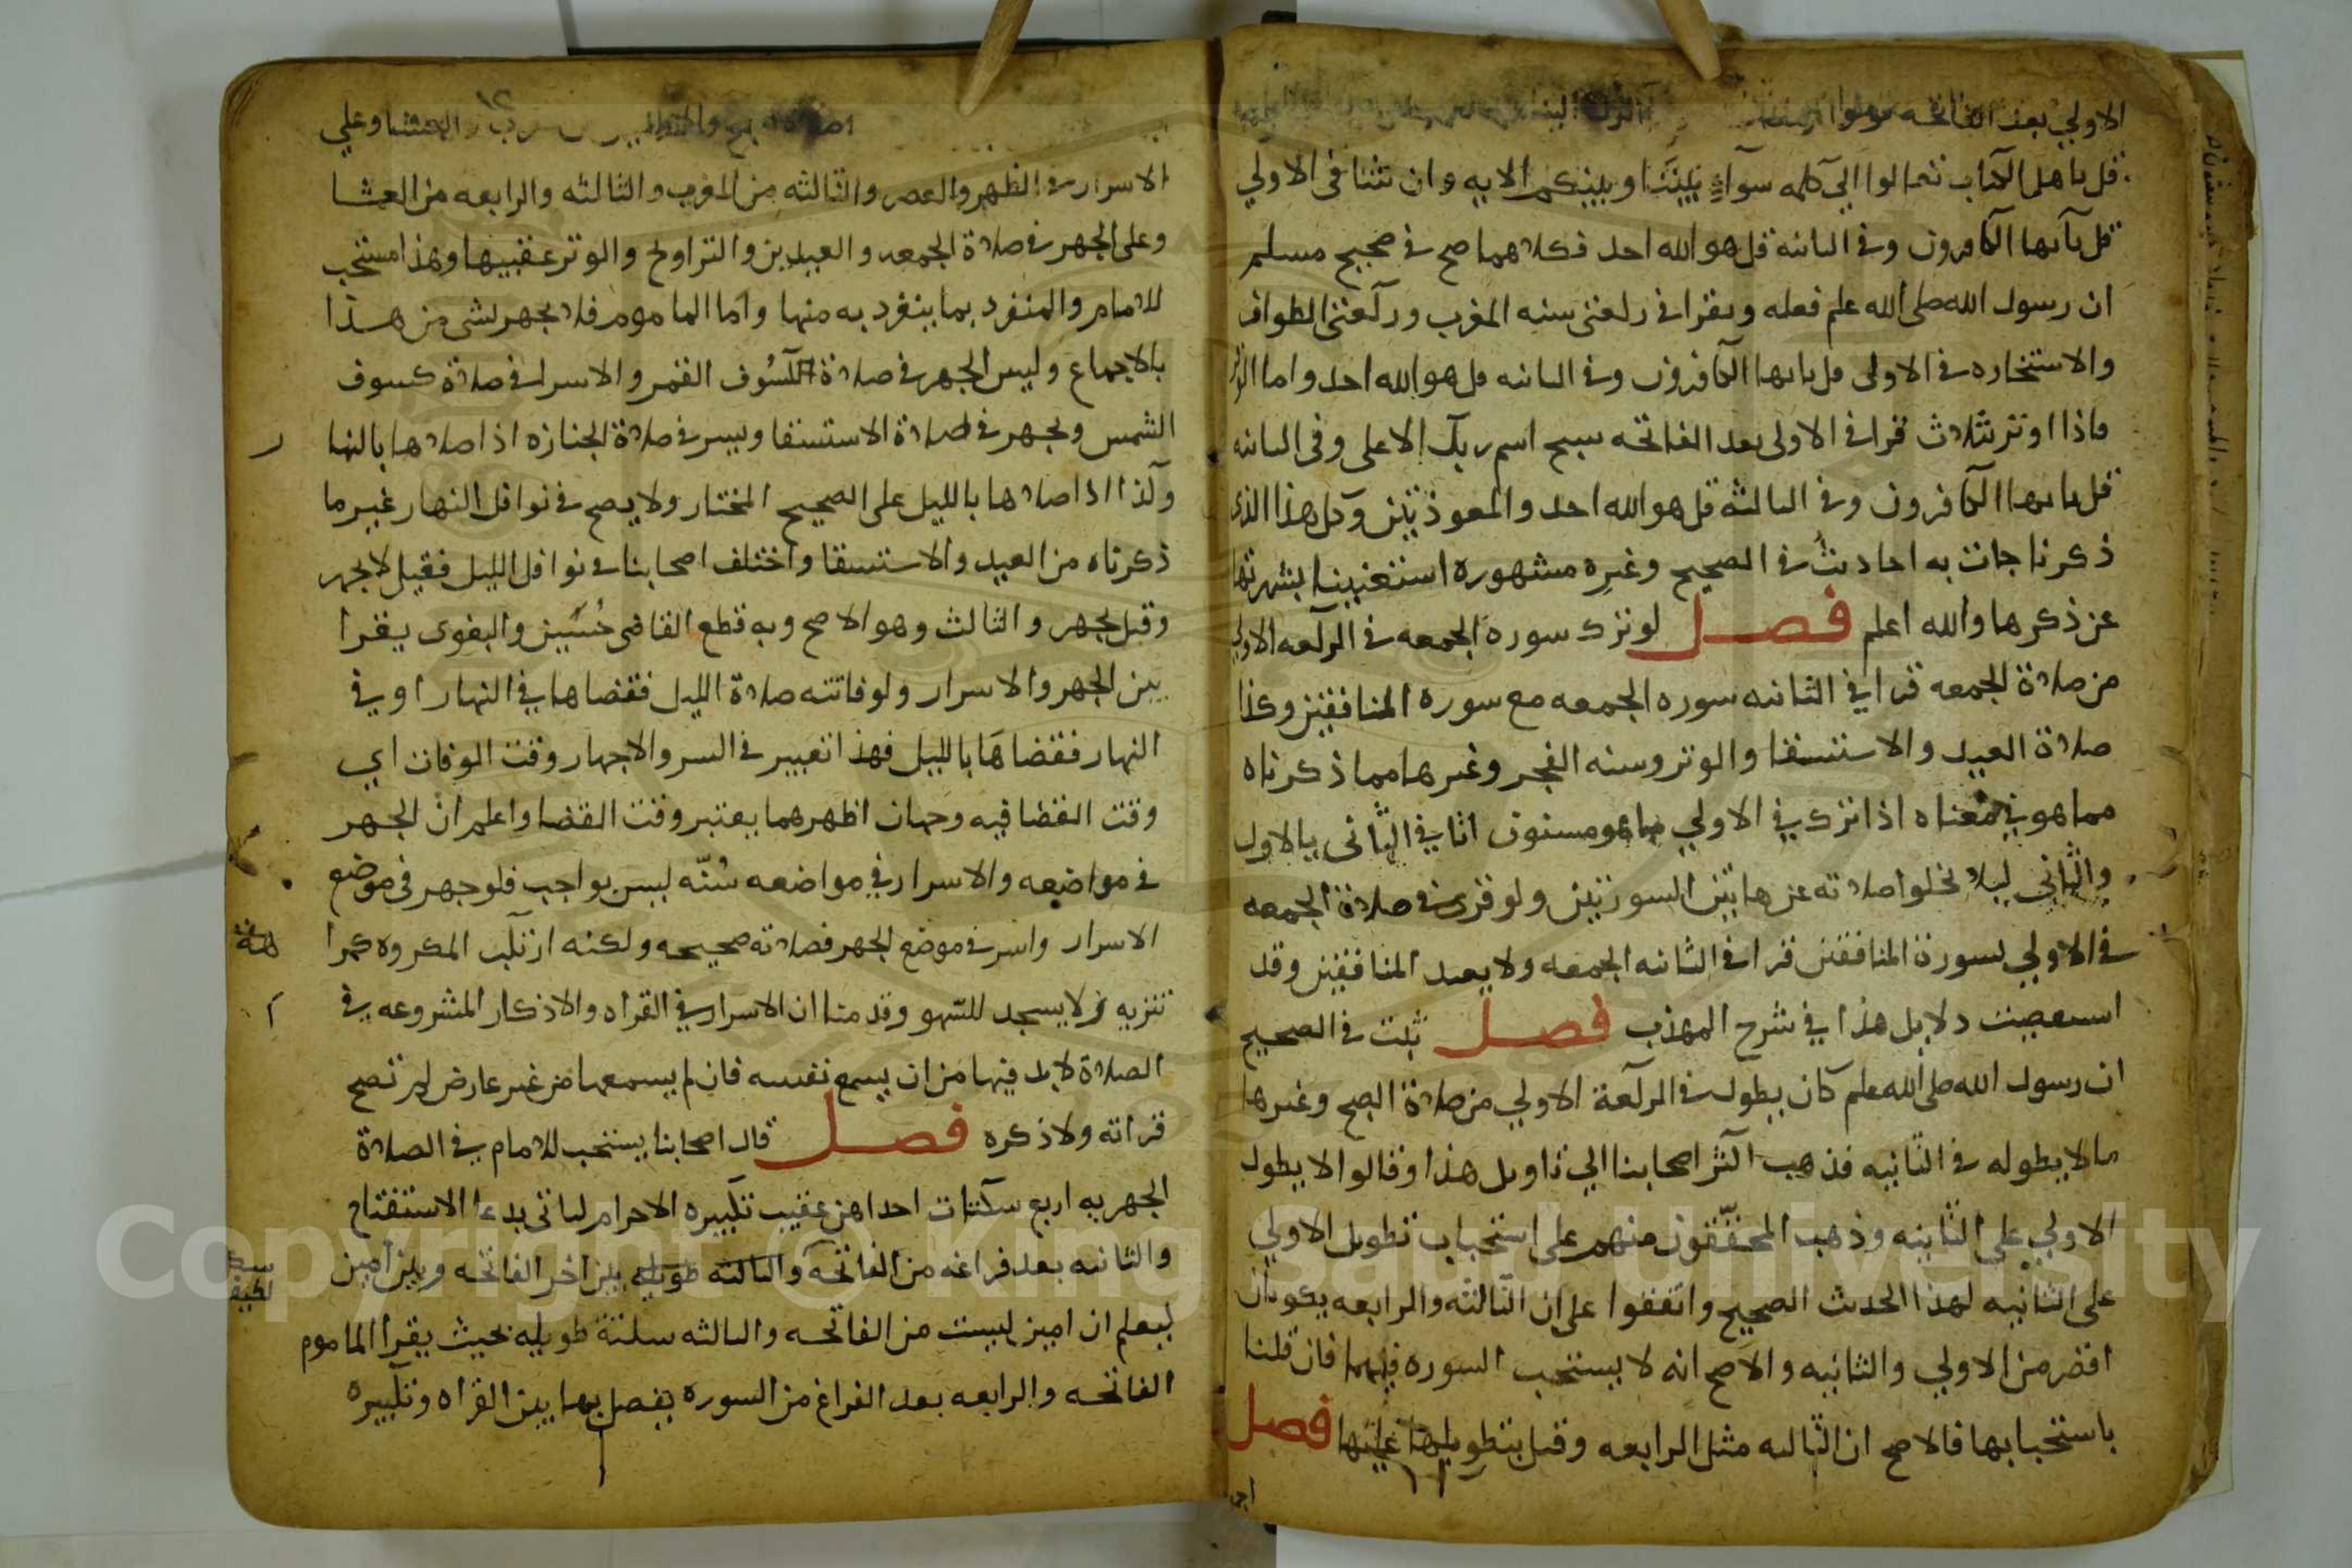 الاولي بعد الفاتحه قولوا امنا
قل ياهل الكتاب تعالوا الي كلمه سوآءٍ بيننا وبينكم الايه وان شا قرا في الاولي
قل يآيها الكافرون وفي الثانيه قل هو الله احد فكلاهما صح في صحيح مسلم
ان رسول الله صلى الله علم فعله ويقرا في ركعتي سنه المغرب وركعتي الطواف
والاستخاره في الاولى قل يايها الكافرون وفي الثانيه قل هو الله احد واما الوتر
فاذا اوتر بثلاث قرا في الاولى بعد الفاتحه سبح اسم ربك الاعلى وفي الثانيه
قل يايها الكافرون وفي الثالثه قل هو الله احد والمعوذتين وكل هذا الذي
ذكرنا جات به احاديث في الصحيح وغيره مشهوره استغنينا بشهرتها
عن ذكرها والله اعلم فصل لو ترك سورة الجمعه في الركعه الاولي
من صلاة الجمعه قرا في الثانيه سوره الجمعه مع سورة المنافقين وكذا
صلاة العيد والاستسقا والوتر وسنه الفجر وغيرها مما ذكرناه
مما هو في معناه اذا ترك في الاولي ما هو مسنون اتا في الثاني بالاول
والثاني ليلا تخلوا صلاته عن هاتين السورتين ولو قرى في صلاة الجمعه
في الاولي بسورة المنافقين قرا في الثانيه الجمعه ولا يعيد المنافقين وقد
استقصيت دلايل هذا في شرح المهذب فصل ثبت في الصحيح
ان رسول الله صلى الله علم كان يطول في الركعة الاولي من صلاة الصبح وغيرها
ما لا يطوله في الثانيه فذهب اكثر اصحابنا الي تاويل هذا وقالوا لا يطول
الاولي على الثانيه وذهب المحققون منهم على استحباب تطويل الاولي
على الثانيه لهذا الحديث الصحيح واتفقوا على ان الثالثه والرابعه يكونان
اقصر من الاولي والثانيه والاصح انه لا يستحب السوره فيهما فان قلنا
باستحبابها فالاصح ان الثالثه مثل الرابعه وقيل بتطويلها عليها فصل
والعشا وعلي
الاسرار في الظهر والعصر والثالثه من المغرب والثالثه والرابعه من العشا
وعلى الجهر في صلاة الجمعه والعيدين والتراويح والوتر عقبيها وهذا مستحب
للامام والمنفرد بما ينفرد به منها واما الماموم فلا يجهر بشي من هذا
بالاجماع وليس الجهر في صلاة الكسوف القمر والاسرار في صلاة كسوف
الشمس ويجهر في صلاة الاستسقا ويسر في صلاة الجنازه اذا صلاها بالنها
وكذا اذا صلاها بالليل على الصحيح المختار ولا يصح في نوافل النهار غير ما
ذكرناه من العيد والاستسقا واختلف اصحابنا في نوافل الليل فقيل لا يجهر
وقيل يجهر والثالث وهو الاصح وبه قطع القاضي حُسَين والبغوى يقرا
بين الجهر والاسرار ولو فاتته صلاة الليل فقضاها في النهار او في
النهار فقضاها بالليل فهذا تعبير في السر والاجهار وقت الوفات اي
وقت القضا فيه وجهان اظهرهما يعتبر وقت القضا واعلم ان الجهر
في مواضعه والاسرار في مواضعه سُنّه ليس بواجب فلو جهر في موضع
الاسرار واسر في موضع الجهر فصلاته صحيحه ولكنه ارتكب المكروه كمرا
تنزيه ولا يسجد للسهو وقد منا ان الاسرار في القراه والاذكار المشروعه في
الصلاة لا بد فيها من ان يسمع نفسه فان لم يسمعها من غير عارض لم تصح
قراته ولا ذكره فصل قال اصحابنا يستحب للامام في الصلاة
الجهريه اربع سكتات احداهن عقيب تكبيره الاحرام لياتي بدعا الاستفتاح
والثانيه بعد فراغه من الفاتحه والثالثه طويله بين اخر الفاتحه وبين امين
ليعلم ان امين ليست من الفاتحه والثالثه سكتة طويله بحيث يقرا الماموم
الفاتحه والرابعه بعد الفراغ من السوره يفصل بها بين القراه وتكبيره
Copyright © King Saud University